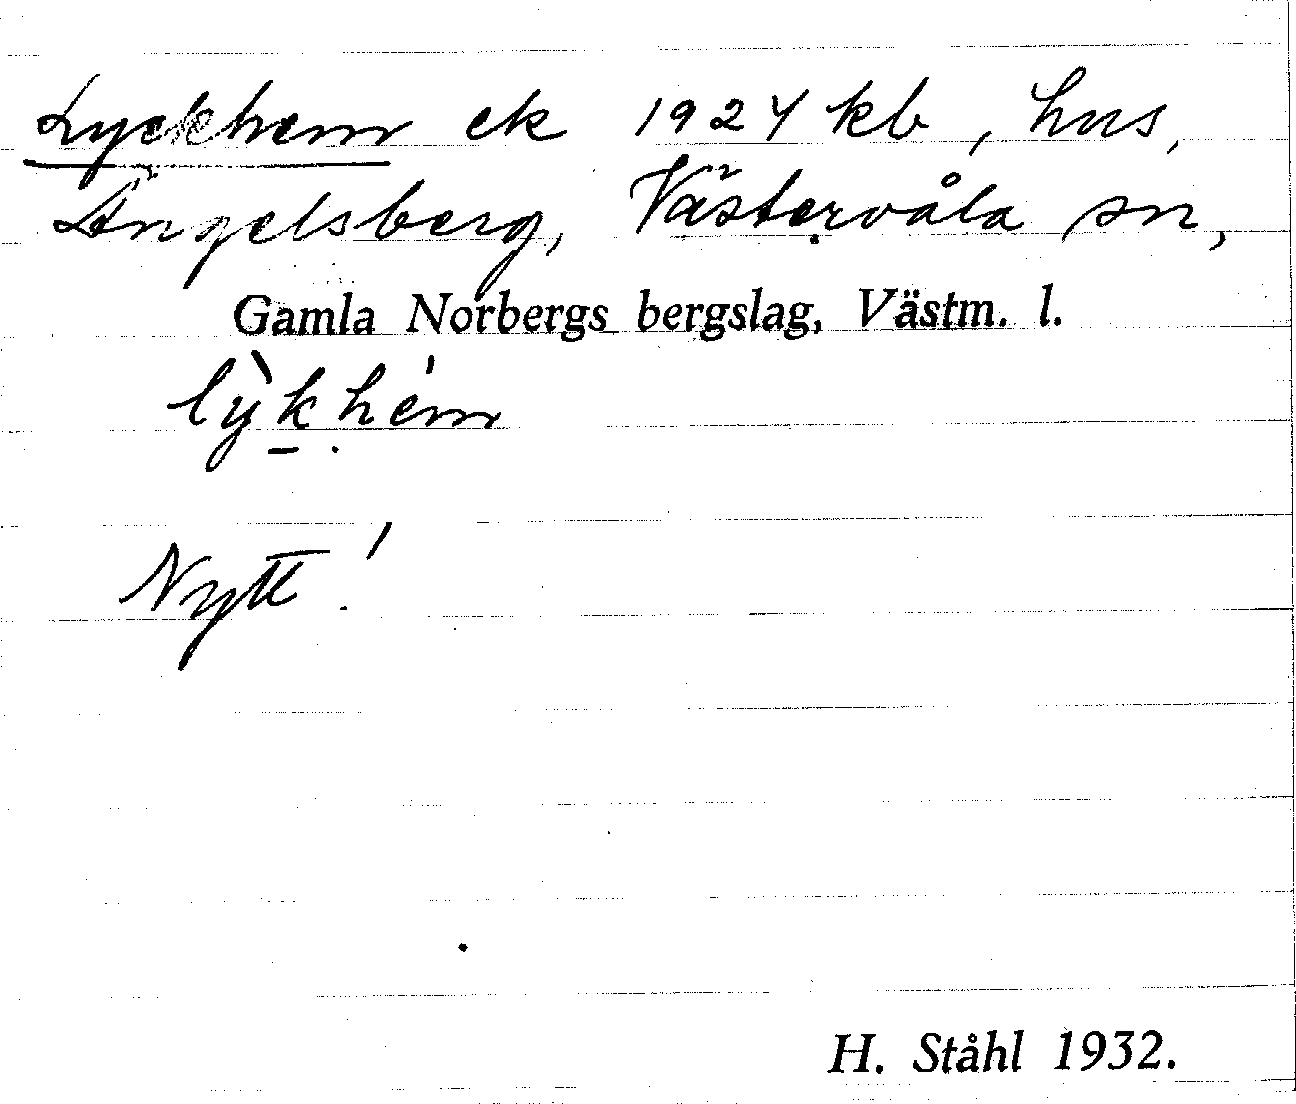 Lyckhem ek 1924 kb, hus,
Ängelsberg, Västervåla sn,
Gamla Norbergs bergslag, Västm. l.
lỳkhém
Nytt!
H. Ståhl 1932.